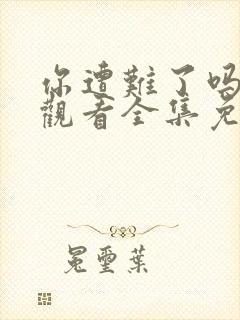 你遭難了嗎
觀看全集免
冕璽葉